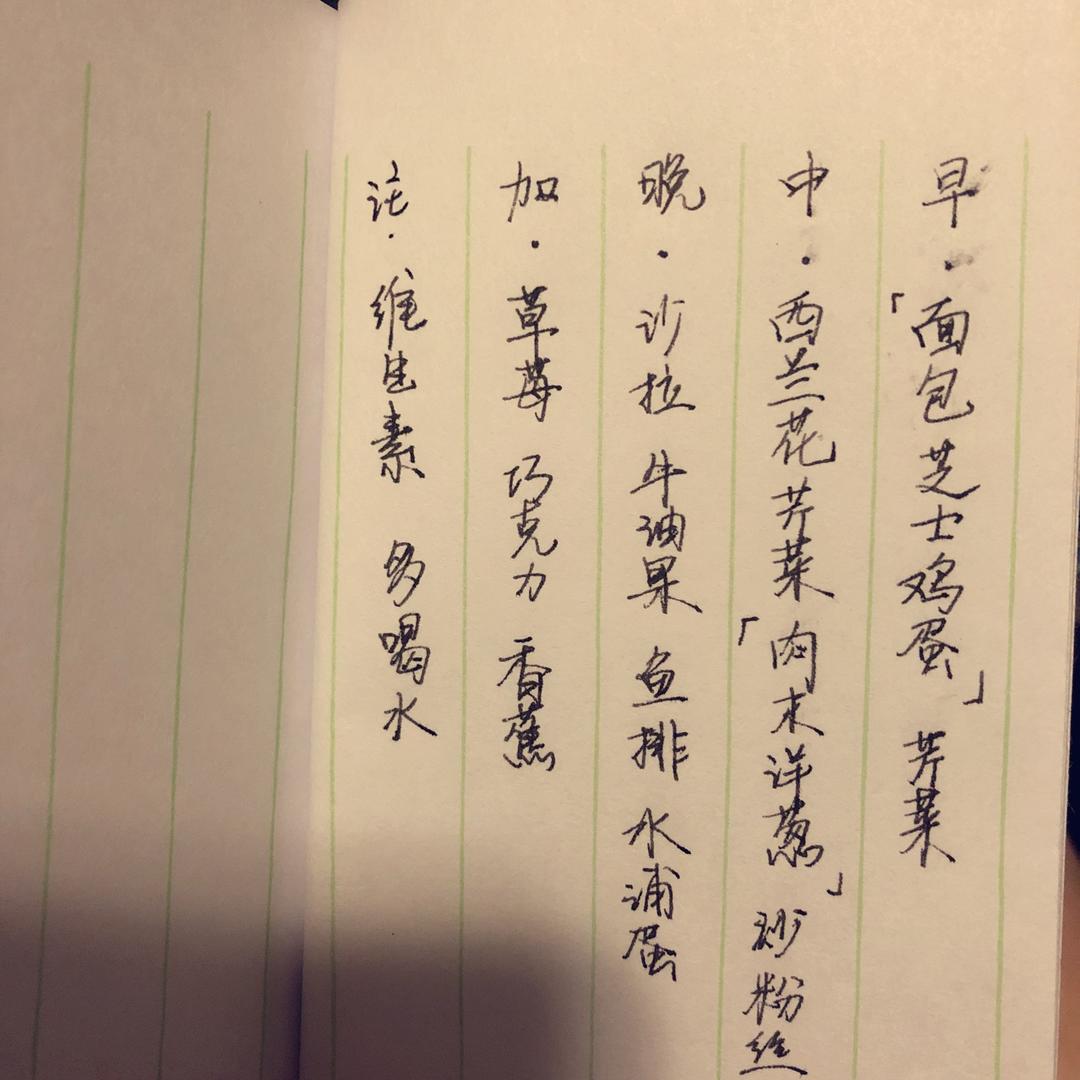 早·「面包芝士鸡蛋」 芹菜
中·西兰花 芹菜「肉末洋葱」炒粉丝
晚·沙拉 牛油果 鱼排 水浦蛋
加·草莓 巧克力 香蕉
注·维生素 多喝水